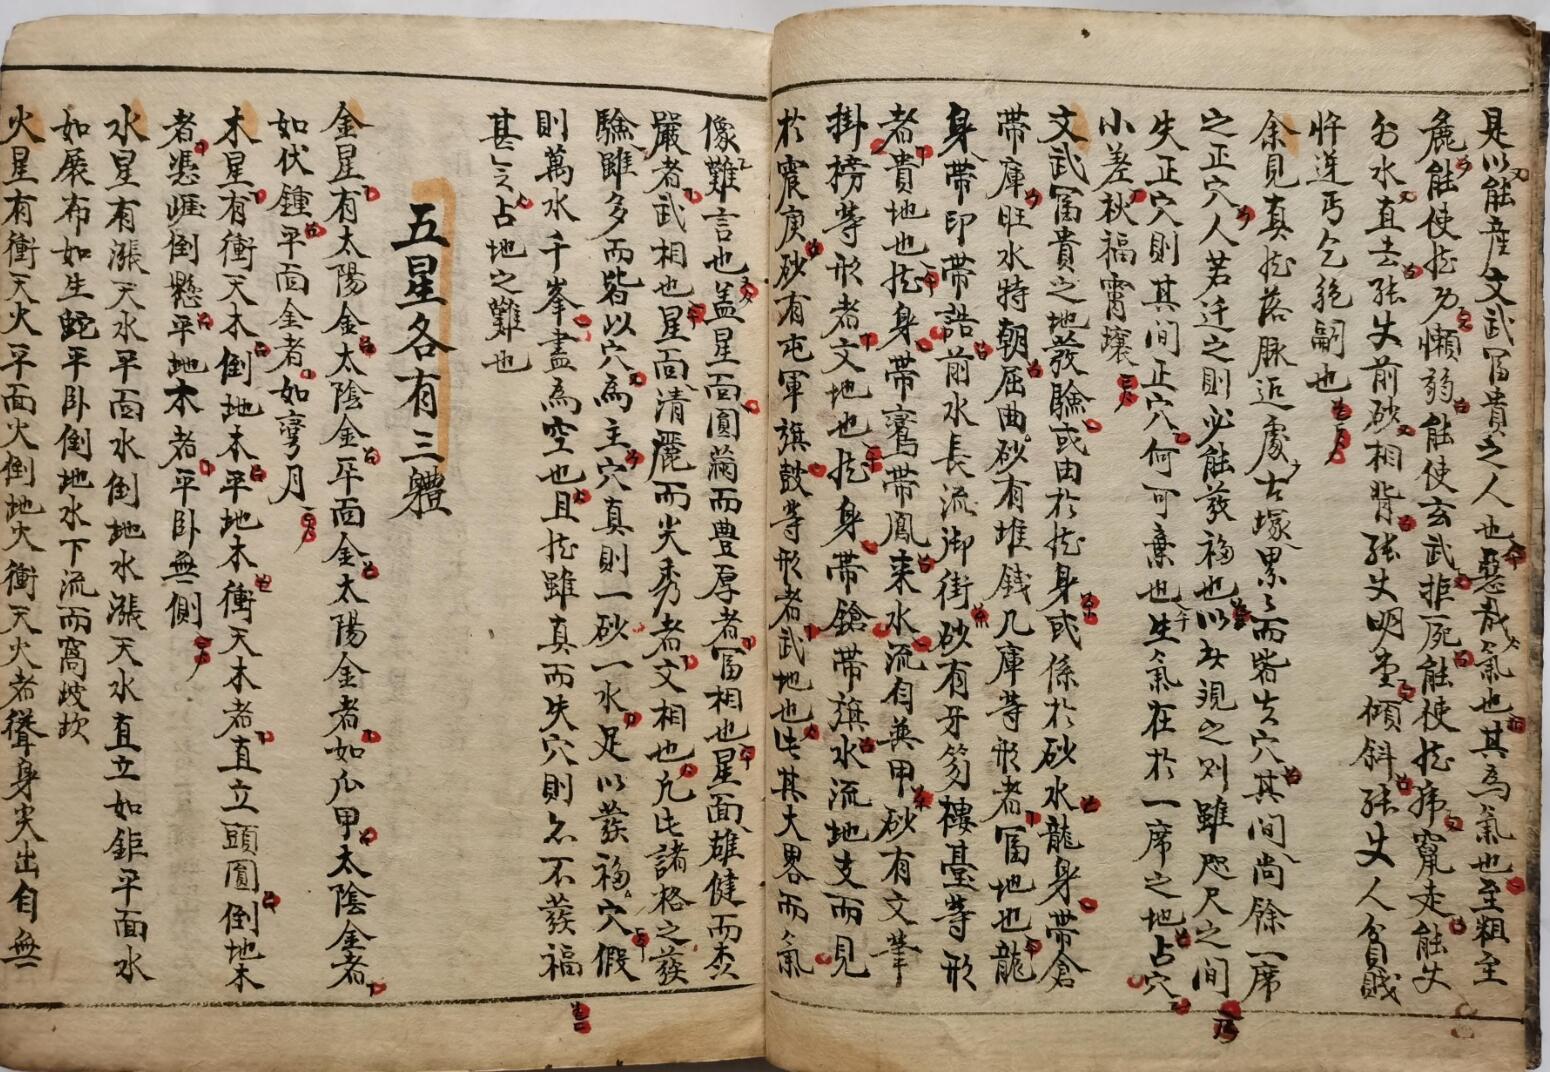 是以能産文武富貴之人也惡哉氣也其為氣也至粗至
麁能使龙劣懶弱能使玄武拒屍能使龙奔竄走能丈
於水直去張丈前砂相背張丈明堂傾斜張丈人貧賤
將逆丐乞絶嗣也
余見真龙落脉近處古塚累〻而皆失穴其間尚餘一席
之正穴人若迁之則必能茇福也以此現之則雖咫尺之間
失正穴則其間正穴何可棄也生氣在於一席之地占穴
小差秋福霄壤
文武富貴之地發驗或由於龙身或係於砂水龍身帶倉
帶庫旺水特朝屈曲砂有堆錢几庫等形者富地也龍
身帶印帶誥前水長流御街砂有牙笏樓臺等形
者貴地也龙身帶鸞帶鳳来水流自巽甲砂有文筆
掛榜等形者文地也龙身帶鎗帶旗水流地支而見
於震庚砂有屯軍旗鼓等形者武地也此其大畧而氣
像難言也盖星面圓滿而豊厚者富相也星面雄健而
嚴者武相也星面清麗而尖秀者文相也凡此諸格之茇
驗雖多而皆以穴為主穴真則一砂一水足以茇福穴假
則萬水千峯盡為空也且龙雖真而失穴則亦不茇福
甚矣占地之難也
五星各有三軆
金星有太陽金太陰金平面金太陽金者如瓜甲太陰金者
如伏鍾平面金者如彎月
木星有衝天木倒地木平地木衝天木者直立頭圓倒地木
者憑崖倒懸平地木者平卧無側
水星有漲天水平面水倒地水漲天水直立如鉅平面水
如展布如生蛇平卧倒地水下流而窩坡坎
火星有衝天火平面火倒地火衝天火者聳身尖出自無